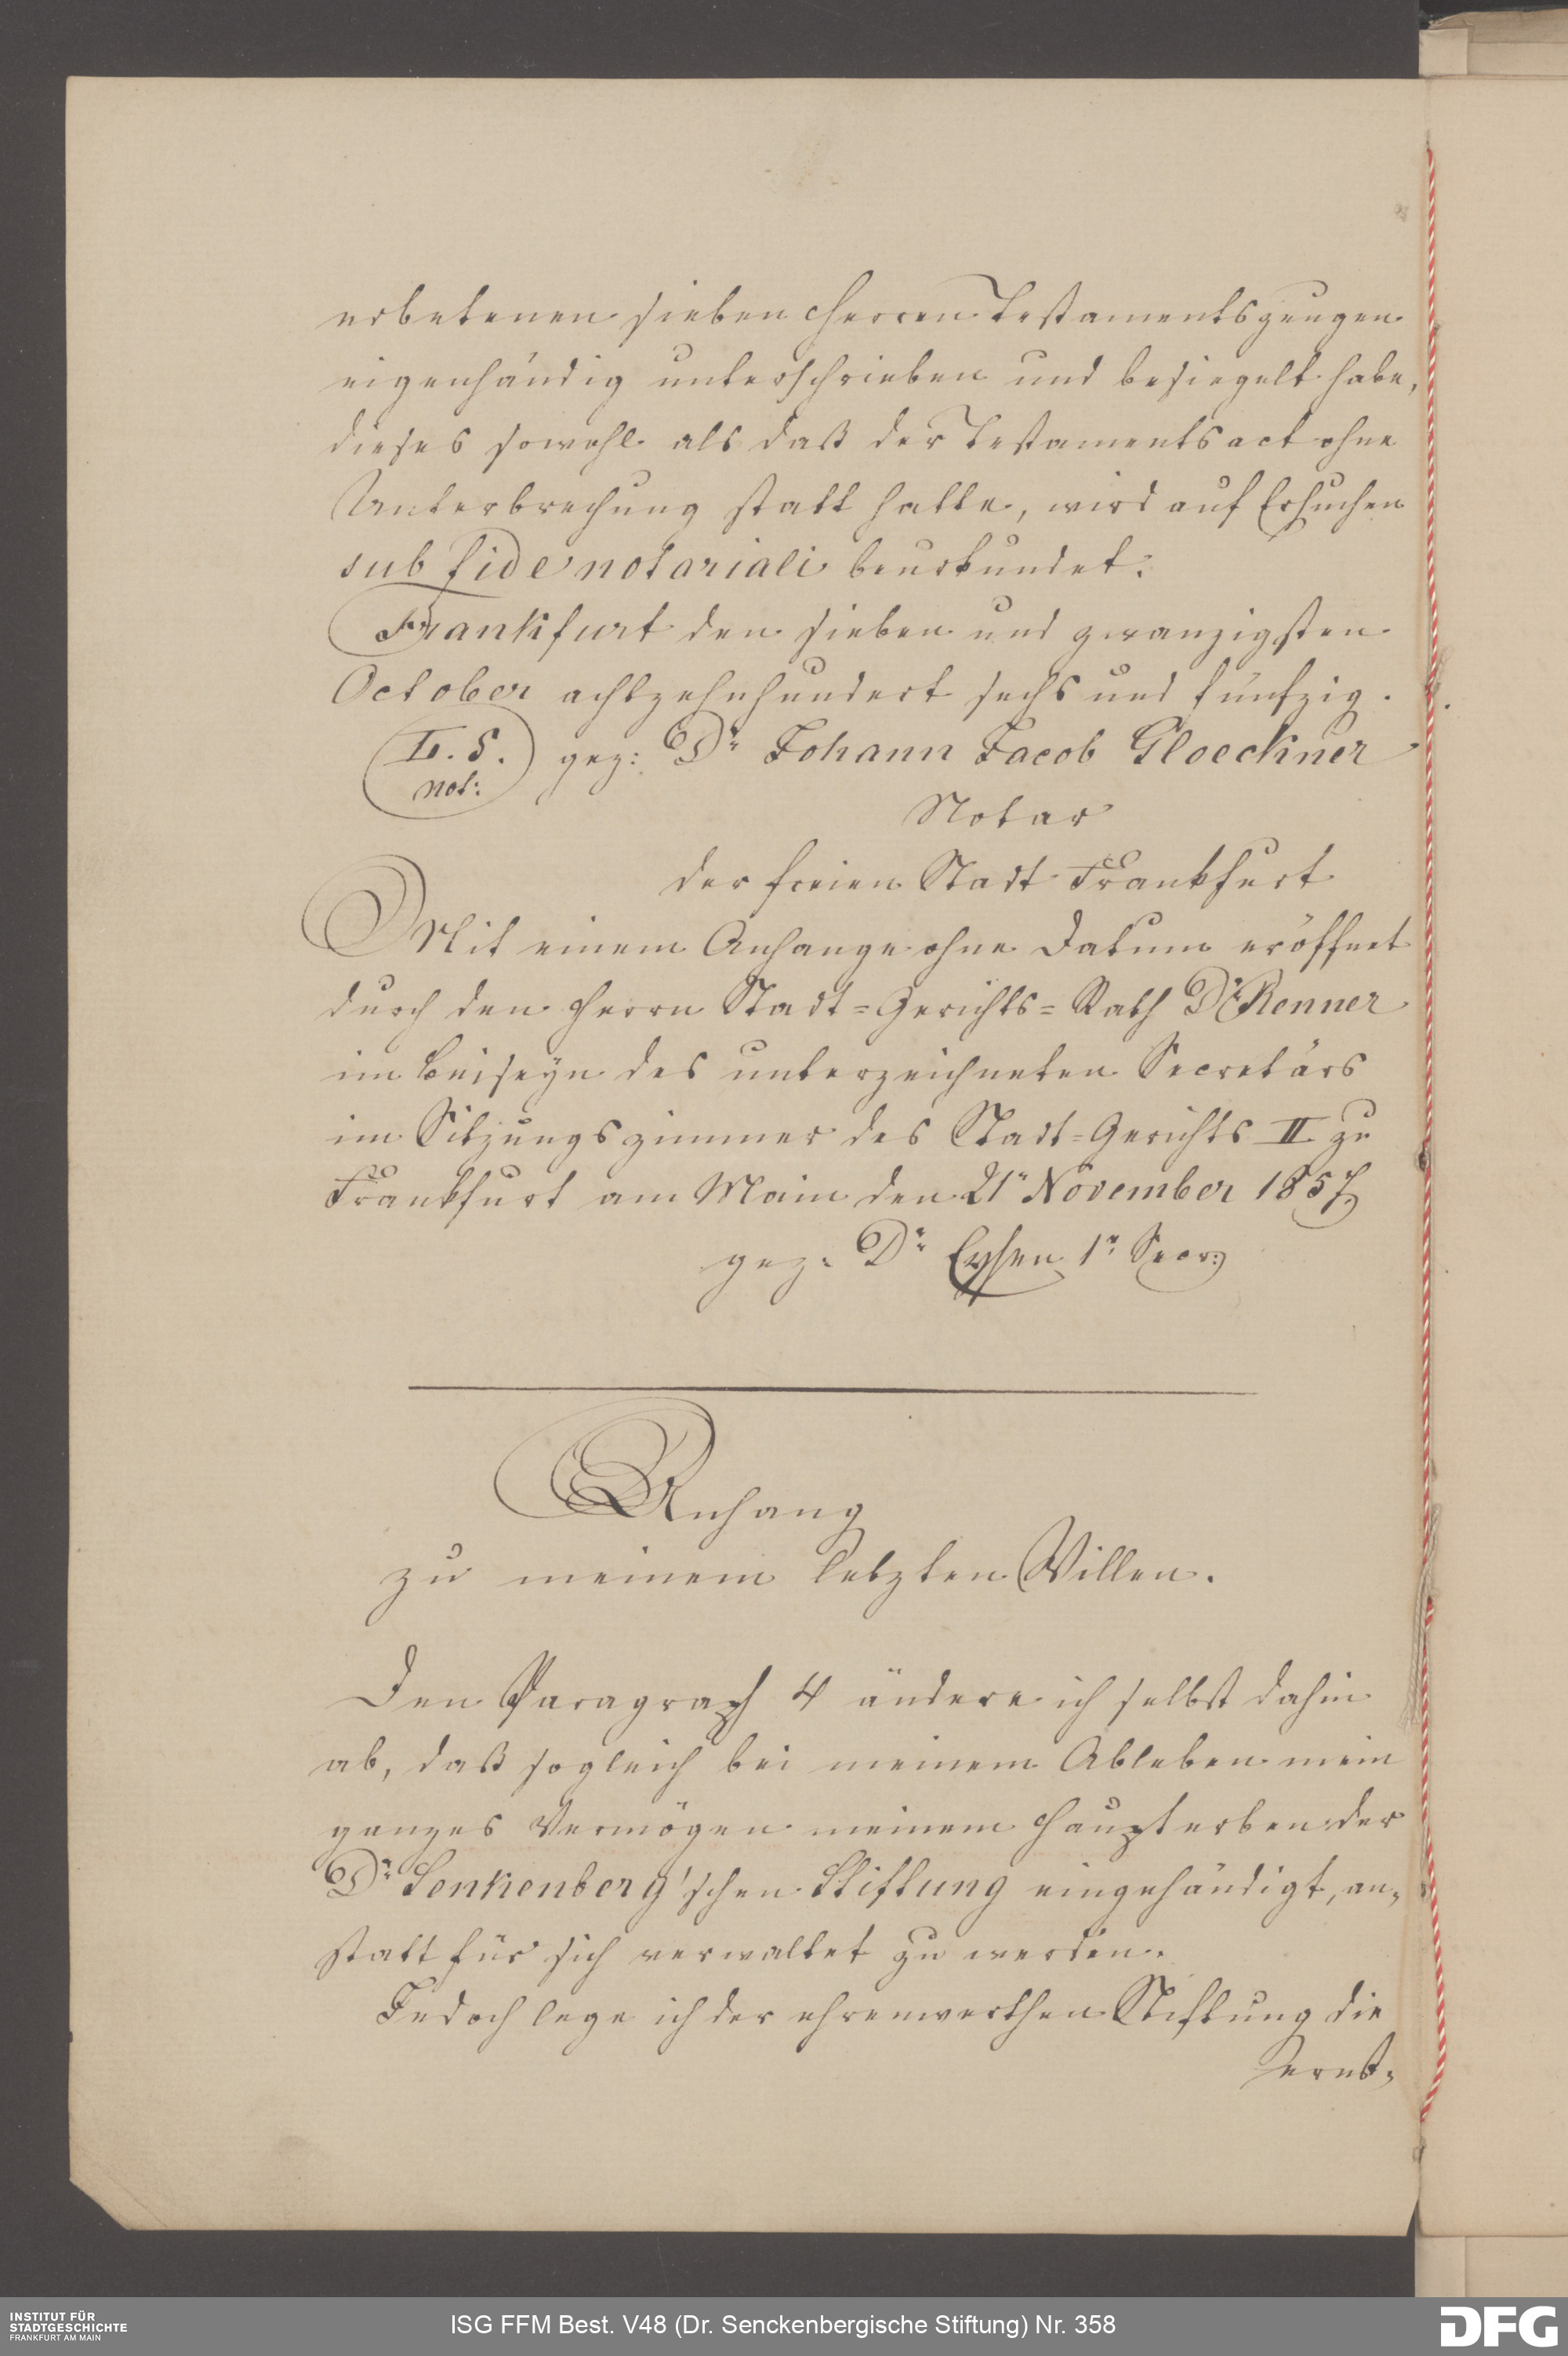 erbetenen sieben Herren Testamentszeugen
eigenhändig unterschrieben und besiegelt habe,
dieses sowohl als daß der Testamentsact ohne
Unterbrechung statt hatte, wird auf Ersuchen
sub fide notariali beurkundet.
Frankfurt den sieben und zwanzigsten
October achtzehnhundert sechs und fünfzig.
L. S. gez: Dr Johann Jacob Gloeckner
not:
Notar
der freien Stadt Frankfurt
Mit einem Anhange ohne Datum eröffnet
durch den Herrn Stadt=Gerichts=Rath Dr Renner
im Beiseyn des unterzeichneten Secretärs
im Sitzungszimmer des Stadt=Gerichts II zu
Frankfurt am Main den 21n November 1857.
gez. Dr Eysen 1r Secr:
Anhang
zu meinem letzten Willen.
Den Paragraph 4 ändere ich selbst dahin
ab, daß sogleich bei meinem Ableben mein
ganzes Vermögen meinem Haupterben der
Dr Senkenberg'schen Stiftung eingehändigt, an=
statt für sich verwaltet zu werden.
Jedoch lege ich der ehrenwerthen Stiftung die
ernst=
INSTITUT FÜR
STADTGESCHICHTE
FRANKFURT AM MAIN
ISG FFM Best. V48 (Dr. Senckenbergische Stiftung) Nr. 358
DFG